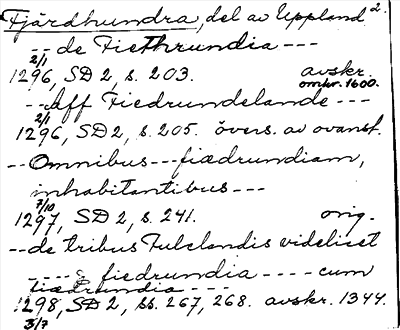 Fjärdhundra, del av Uppland 2.
-- de Fiethrundia ---
2/1
1296, SD 2, s. 203. avskr.
omkr. 1600.
-- Aff Fiedrundelande ---
2/1
1296, SD 2, s. 205. övers. av ovanst.
-- Omnibus --- fiædrundiam,
inhabitantibus ---
7/10
1297, SD 2, s. 241. orig.
-- de tribus Fulclandis videlicet
---- fiedrundia ---- cum
fiædrundia ---
1298, SD 2, ss. 267, 268. avskr. 1344.
3/7